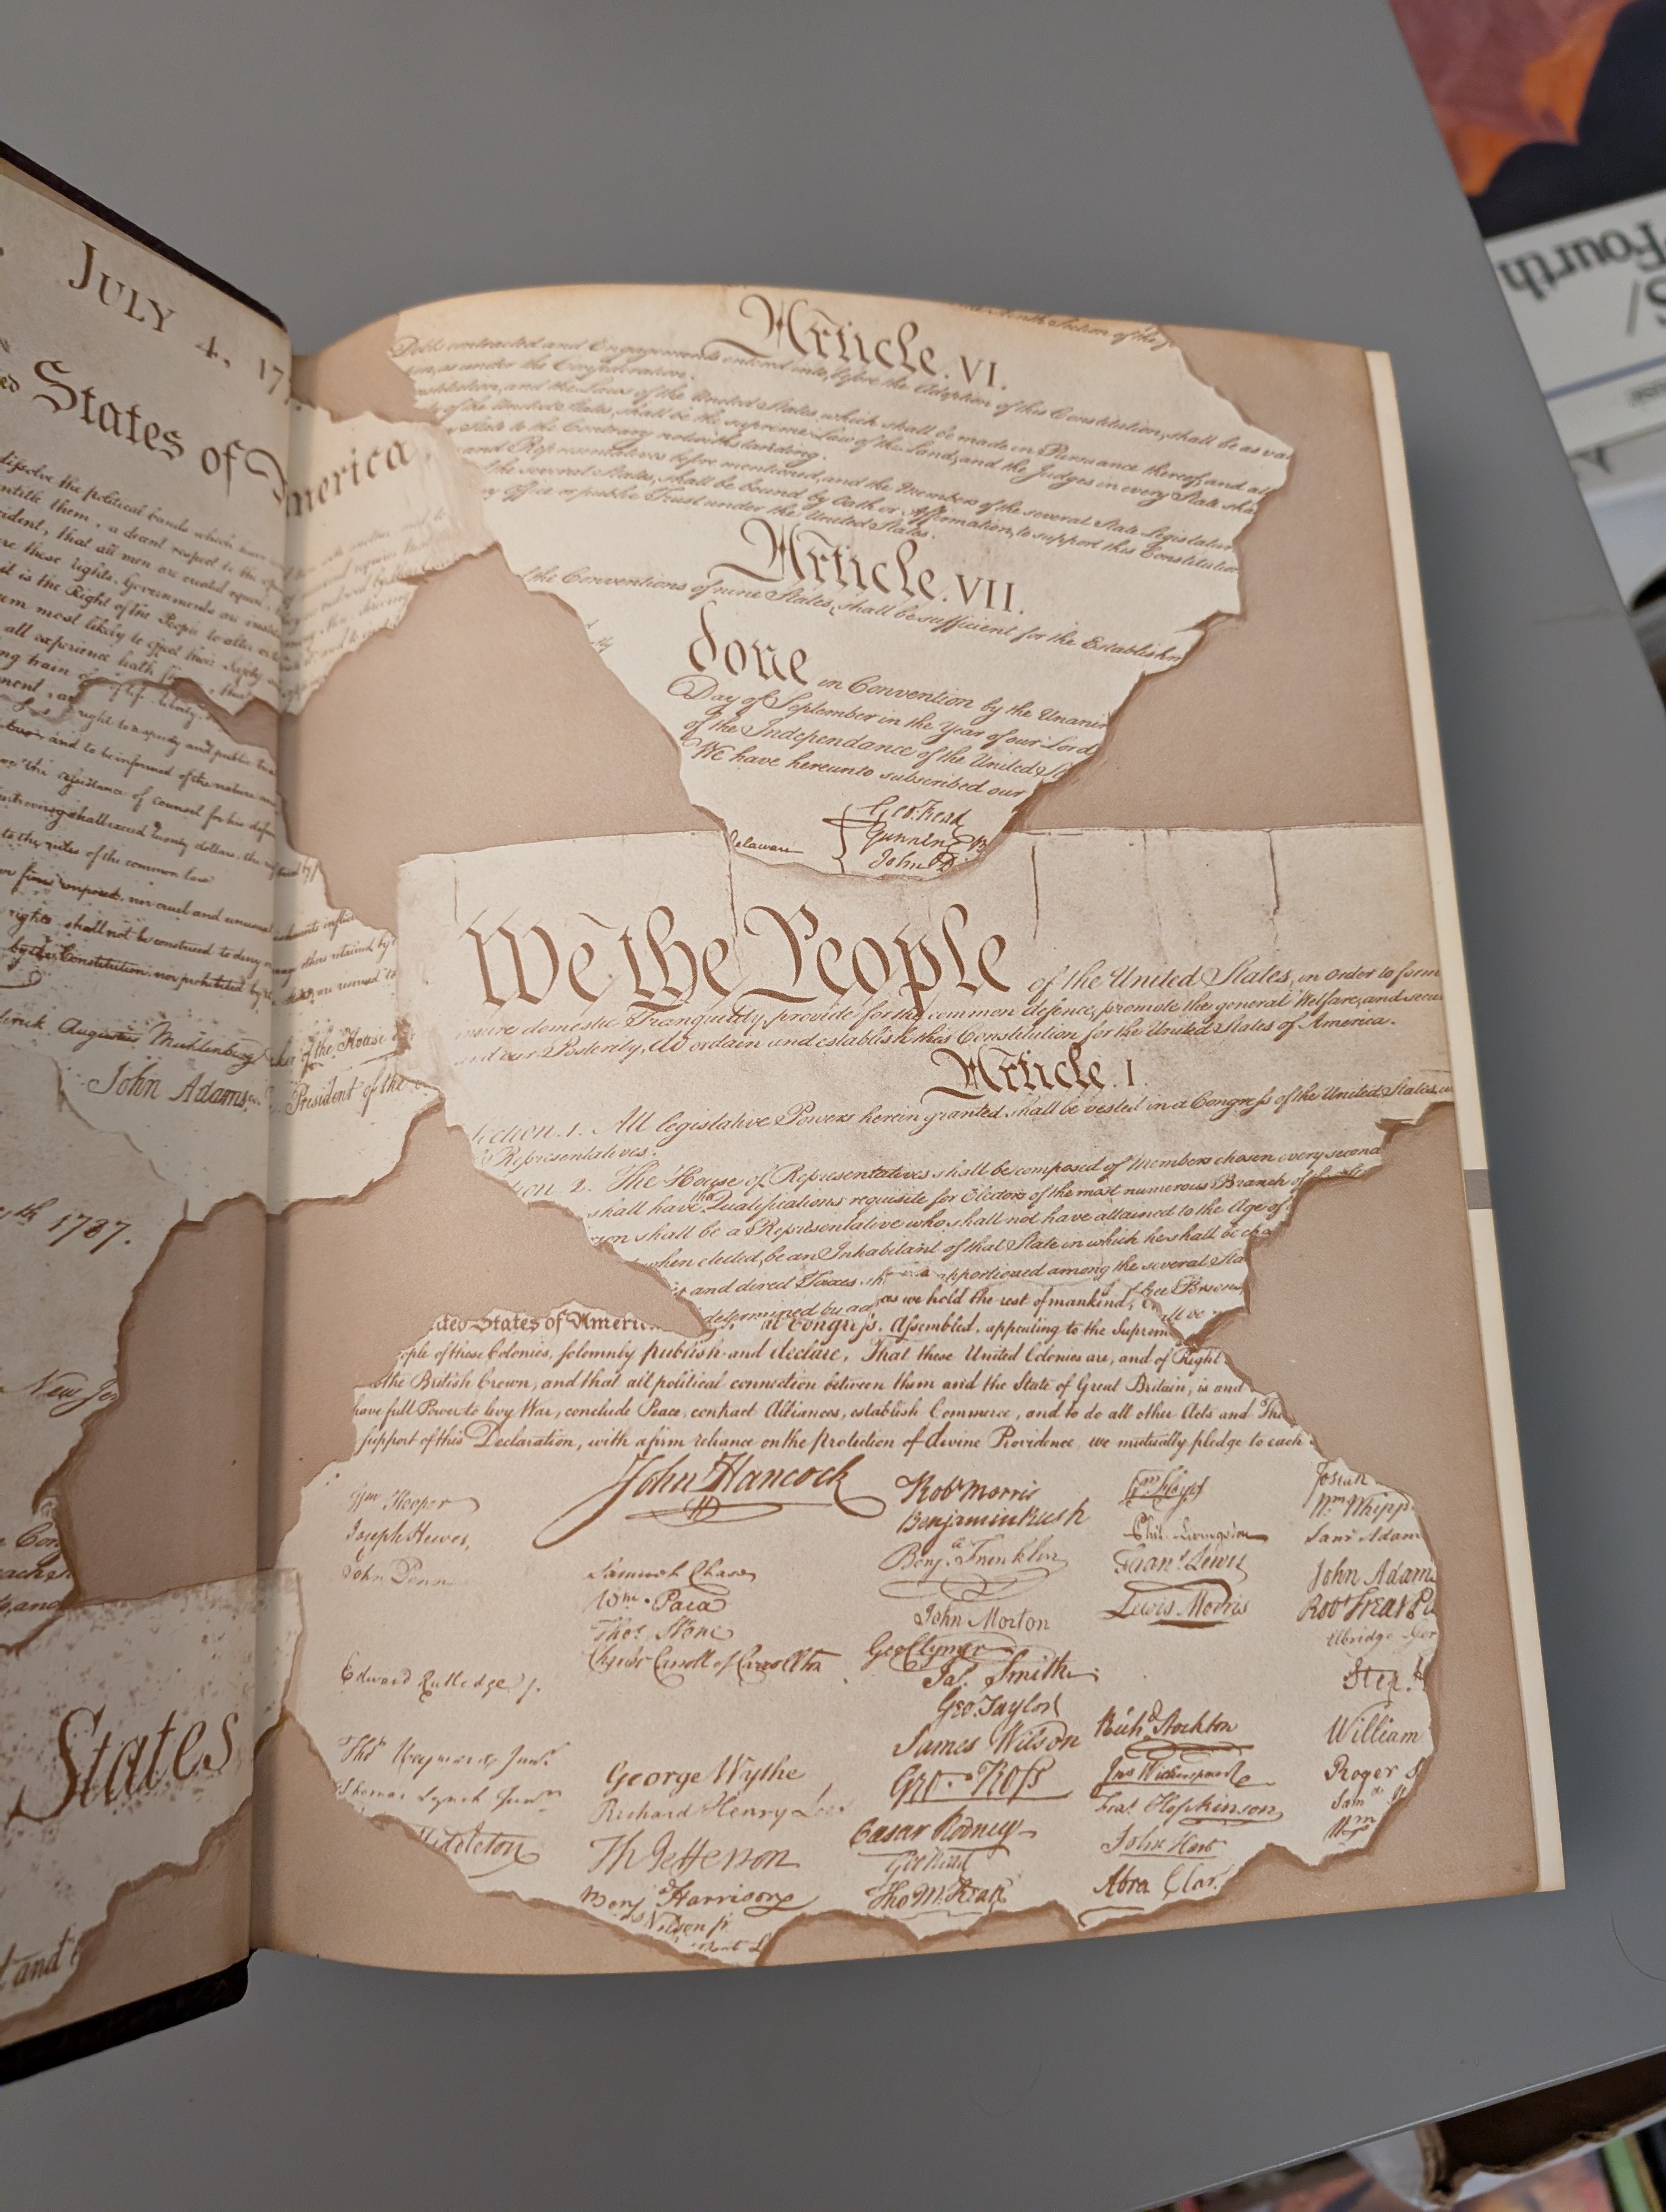 JULY 4, 17
States of America.
dissolve the political bands which have
a decent respect to the
that all men are created equal,
these rights, Governments are
it is the Right of the People to alter or
most likely to effect their Safety
all experience hath
train
right to a speedy and public
and to be informed of the nature
the assistance of counsel for his
shall exceed twenty dollars, the
to the rules of the common law
nor cruel and unusual
rights, shall not be construed to deny or others retained by
by the Constitution, nor prohibited by
Augustus Muhlenberg of the House
John Adams, President of the
1787.
New Jer
States
and
Article. VI.
Debts contracted and Engagements entered into, before the Adoption of this Constitution, shall be as va
as under the Confederation.
and the Laws of the United States which shall be made in Pursuance thereof; and all
of the United States, shall be the supreme Law of the Land; and the Judges in every State sha
State to the Contrary notwithstanding.
and Representatives before mentioned, and the Members of the several State Legislatur
the several States, shall be bound by Oath or Affirmation, to support this Constitution
Office or public Trust under the United States.
Article. VII.
the Conventions of nine States, shall be sufficient for the Establishm
done in Convention by the Unanim
Day of September in the Year of our Lord
of the Independance of the United St
We have hereunto subscribed our
Delaware
Geo: Read
Gunning B
John D
We the People of the United States, in order to form
insure domestic Tranquility, provide for the common defence, promote the general Welfare, and secu
and our Posterity, do ordain and establish this Constitution for the United States of America.
Article. I.
Section. 1. All legislative Powers herein granted shall be vested in a Congress of the United States,
Representatives.
2. The House of Representatives shall be composed of Members chosen every second
shall have the Qualifications requisite for Electors of the most numerous Branch of
shall be a Representative who shall not have attained to the Age of
when elected, be an Inhabitant of that State in which he shall be cho
and direct Taxes sh apportioned among the several Sta
determined by ad as we hold the rest of mankind,
ited States of America Congress, Assembled, appealing to the Suprem
ople of these Colonies, solemnly publish and declare, That these United Colonies are, and of Right
the British Crown, and that all political connection between them and the State of Great Britain, is and
have full Power to levy War, conclude Peace, contract Alliances, establish Commerce, and to do all other Acts and Thi
support of this Declaration, with a firm reliance on the protection of divine Providence, we mutually pledge to each
John Hancock
Wm Hooper
Joseph Hewes,
John Penn
Edward Rutledge /.
Thos Heyward Junr.
Thomas Lynch Junr.
Middleton
Samuel Chase
Wm. Paca
Thos. Stone
Charles Carroll of Carrollton
George Wythe
Richard Henry Lee
Th Jefferson
Benj Harrison
Nelson jr
Robt Morris
Benjamin Rush
Benja. Franklin
John Morton
Geo Clymer
Jas. Smith.
Geo. Taylor
James Wilson
Geo. Ross
Caesar Rodney
Geo Read
Tho M:Kean
Wm Floyd
Phil. Livingston
Frans. Lewis
Lewis Morris
Richd. Stockton
Jno Witherspoon
Fras. Hopkinson
John Hart
Abra Clar
Josiah
Wm Whipp
Saml Adam
John Adam
Robt Treat P
Elbridge Ger
Step. H
William
Roger S
Sam
Wm
Fourth